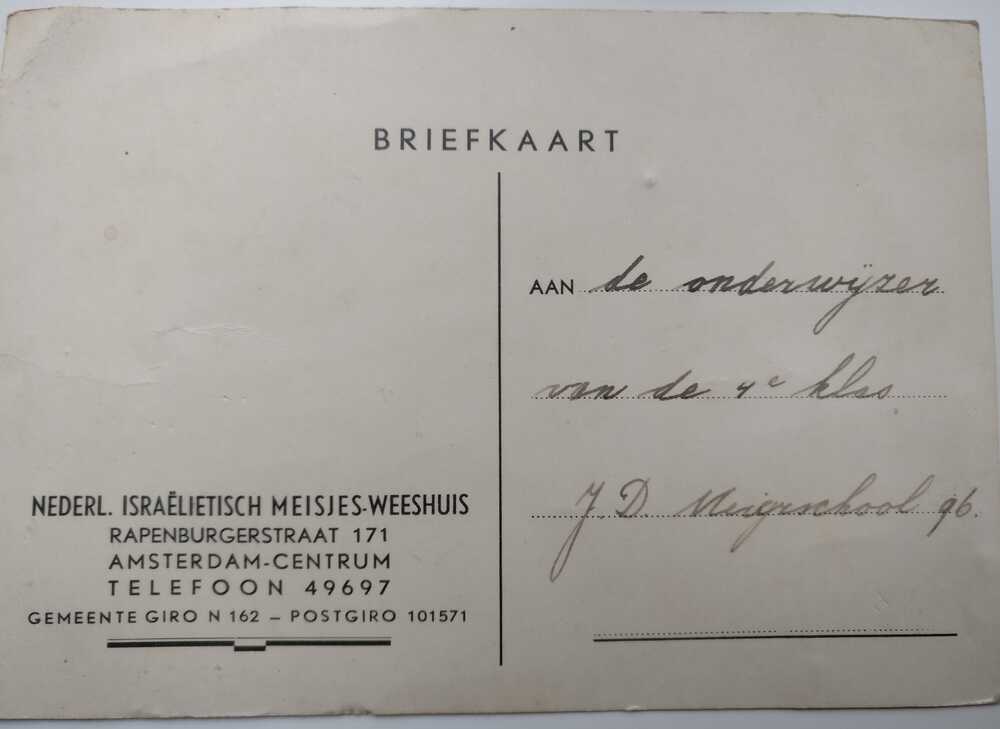 BRIEFKAART
AAN de onderwijzer
van de 4e klas
J. D. Meijerschool 96.
NEDERL. ISRAËLIETISCH MEISJES-WEESHUIS
RAPENBURGERSTRAAT 171
AMSTERDAM-CENTRUM
TELEFOON 49697
GEMEENTE GIRO N 162 – POSTGIRO 101571